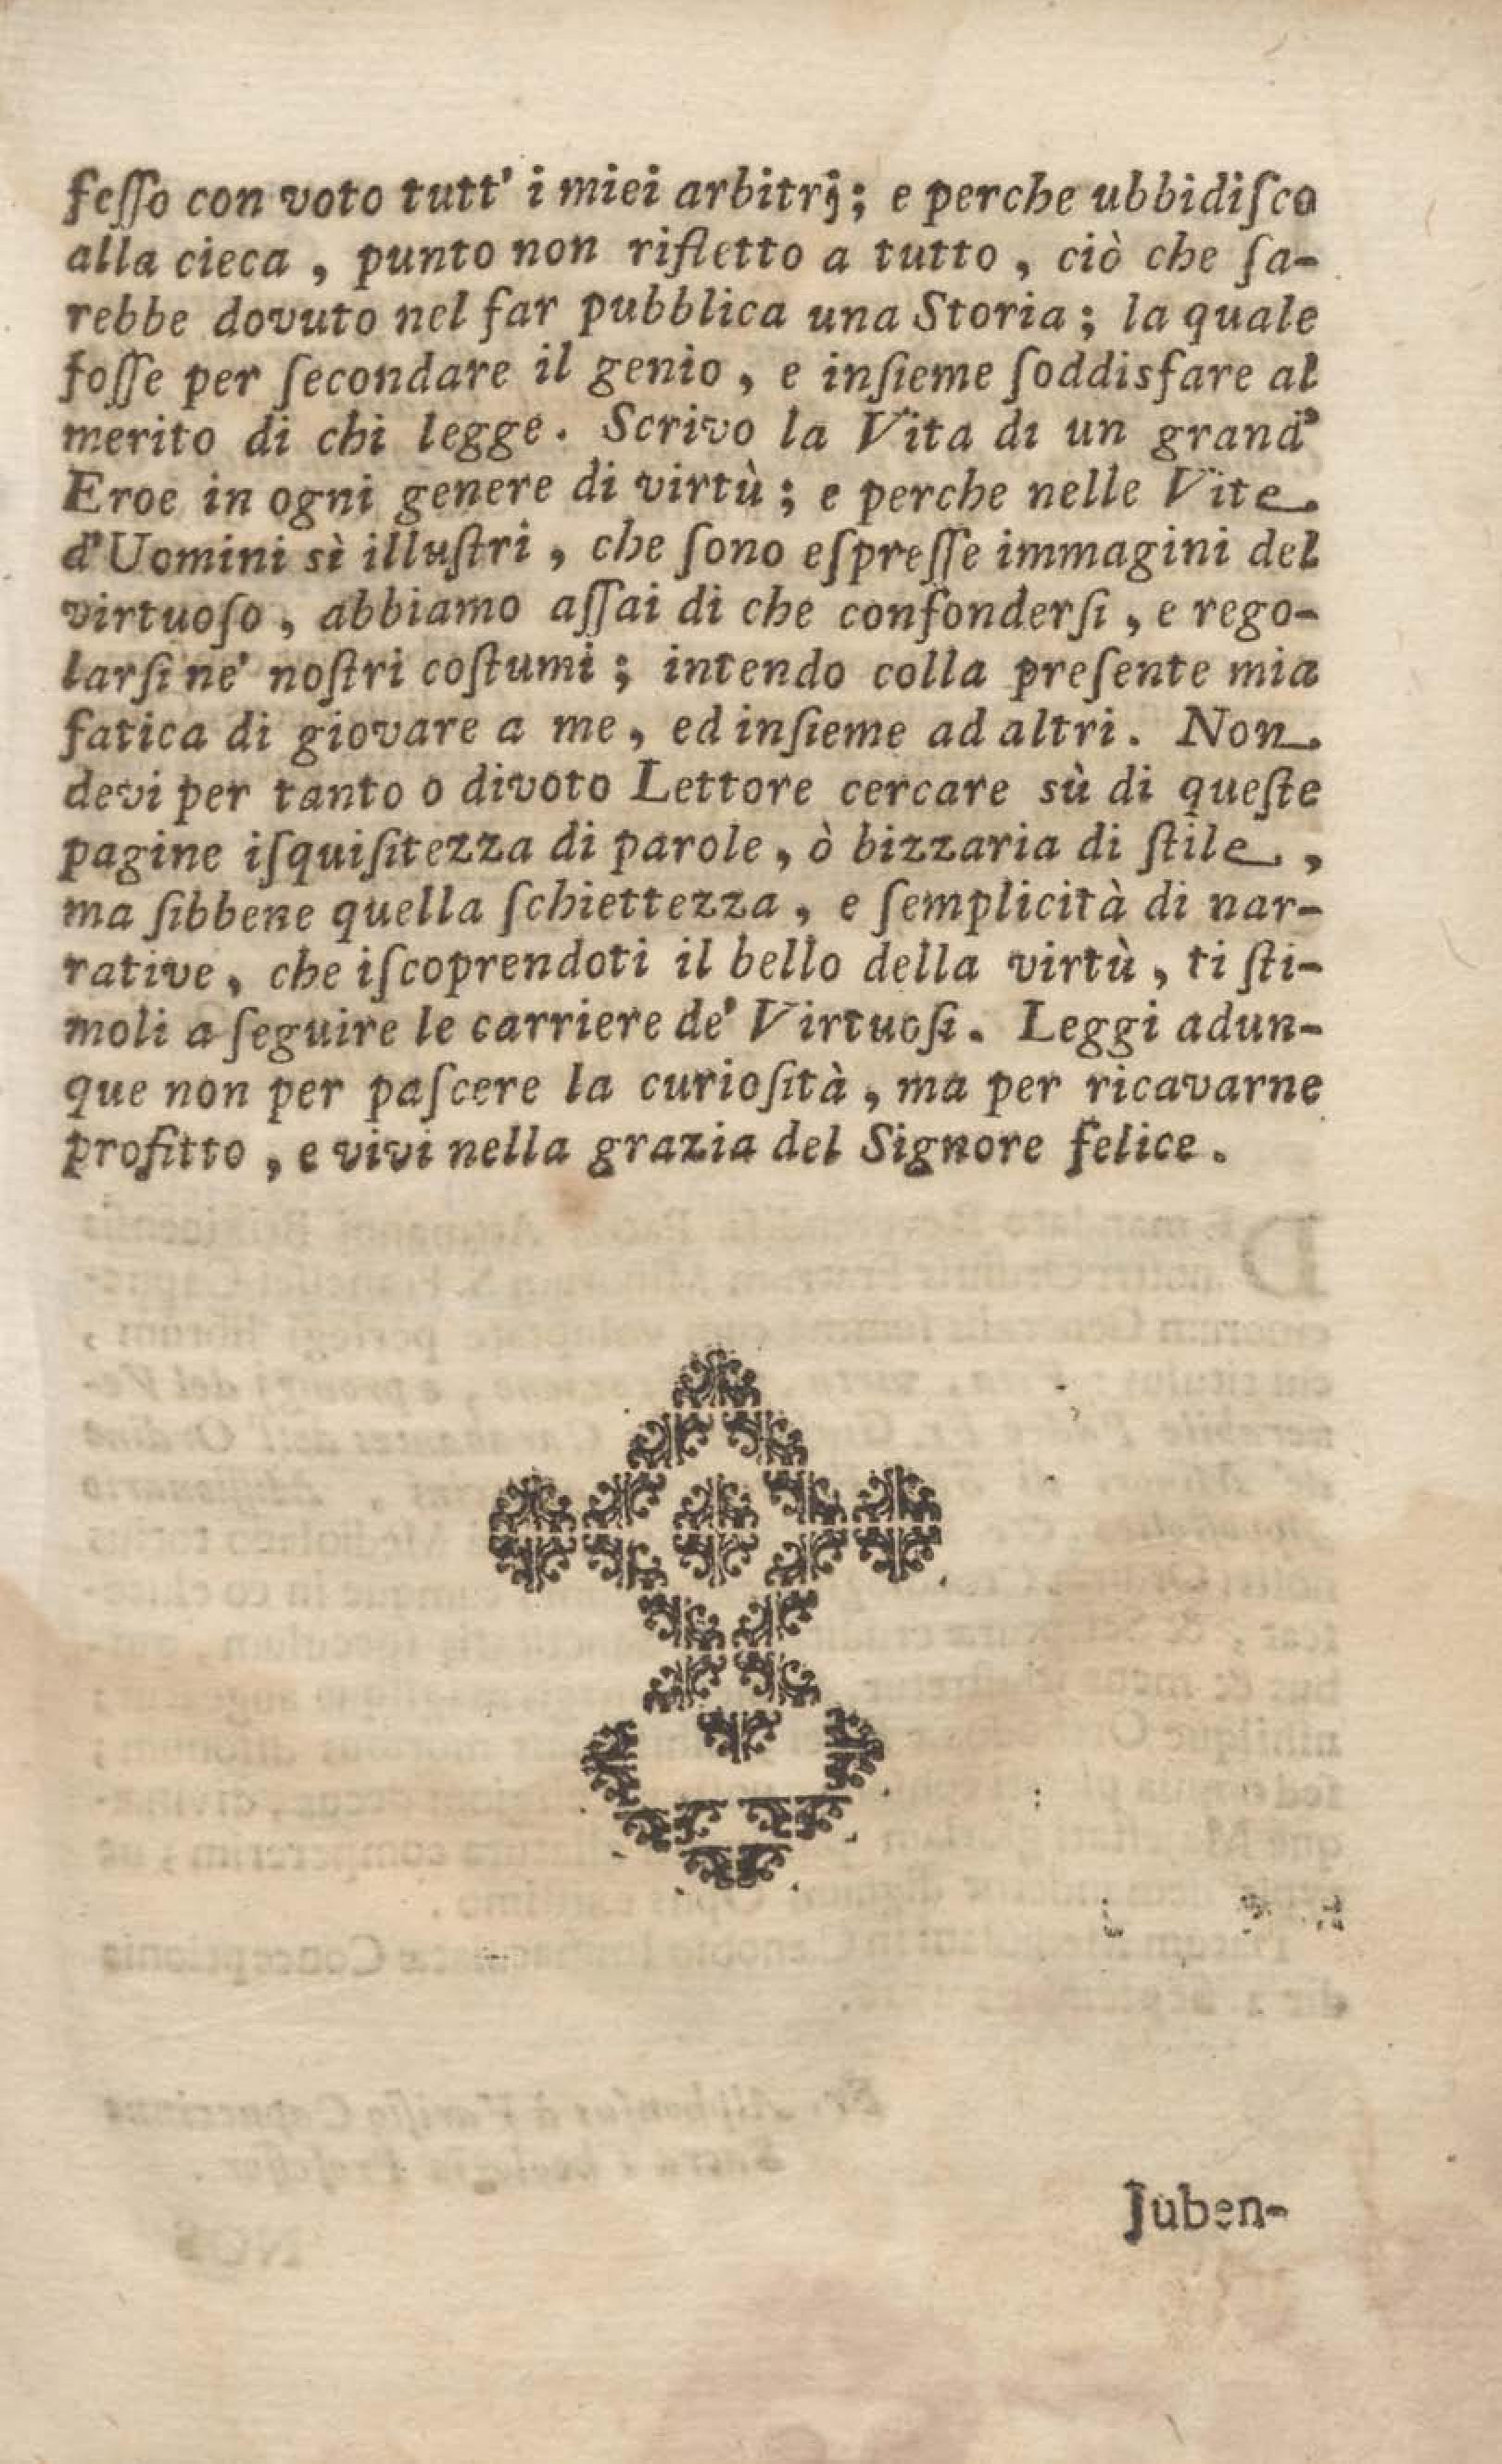 feſſo con voto tutt' i miei arbitrj; e perche ubbidiſco
alla cieca, punto non rifletto a tutto, ciò che ſa-
rebbe dovuto nel far pubblica una Storia; la quale
foſſe per ſecondare il genio, e inſieme ſoddisfare al
merito di chi legge. Scrivo la Vita di un grand'
Eroe in ogni genere di virtù; e perche nelle Vite
d'Uomini sì illuſtri, che ſono eſpreſſe immagini del
virtuoſo, abbiamo aſſai di che confonderſi, e rego-
larſi ne' noſtri coſtumi; intendo colla preſente mia
fatica di giovare a me, ed inſieme ad altri. Non
devi per tanto o divoto Lettore cercare sù di queſte
pagine iſquiſitezza di parole, ò bizzaria di ſtile,
ma ſibbene quella ſchiettezza, e ſemplicità di nar-
rative, che iſcoprendoti il bello della virtù, ti ſti-
moli a ſeguire le carriere de' Virtuoſi. Leggi adun-
que non per paſcere la curioſità, ma per ricavarne
profitto, e vivi nella grazia del Signore felice.
Juben-